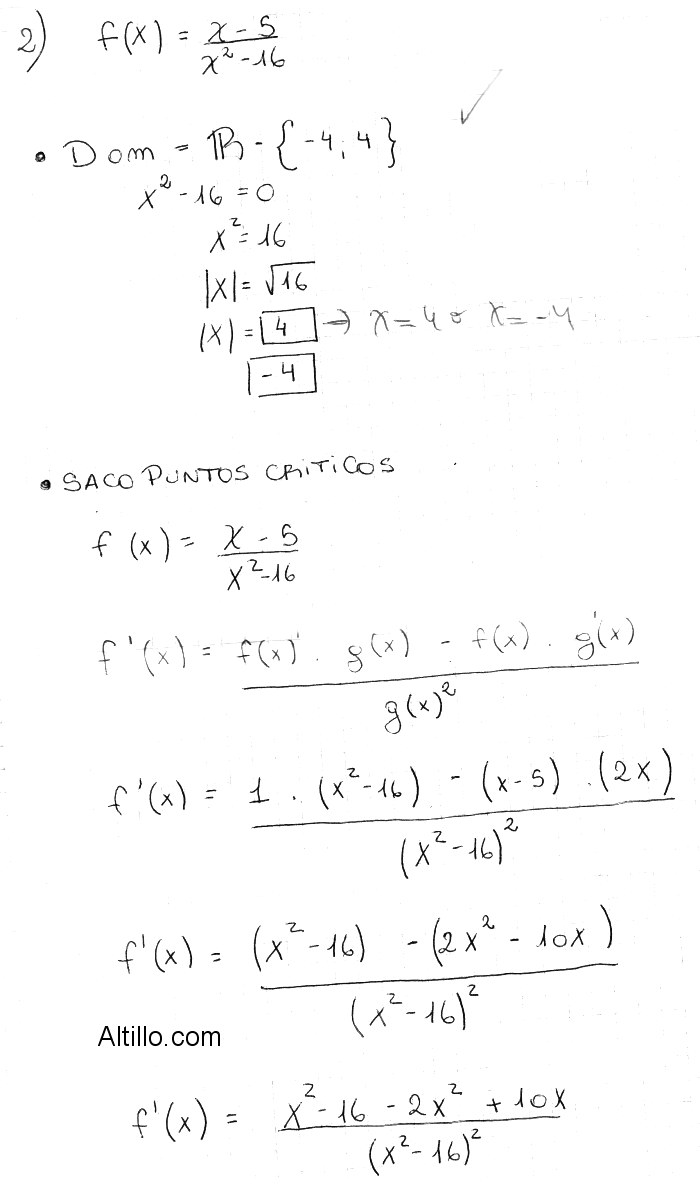 2) f(x) = x - 5 / x² - 16
• Dom = ℝ - {-4, 4}
x² - 16 = 0
x² = 16
|x| = √16
|x| = 4 → x = 4 o x = -4
-4
• SACO PUNTOS CRITICOS
f (x) = x - 5 / x² - 16
f'(x) = f(x)' . g(x) - f(x) . g'(x) / g(x)²
f'(x) = 1 . (x² - 16) - (x - 5) . (2x) / (x² - 16)²
f'(x) = (x² - 16) - (2x² - 10x) / (x² - 16)²
Altillo.com
f'(x) = x² - 16 - 2x² + 10x / (x² - 16)²